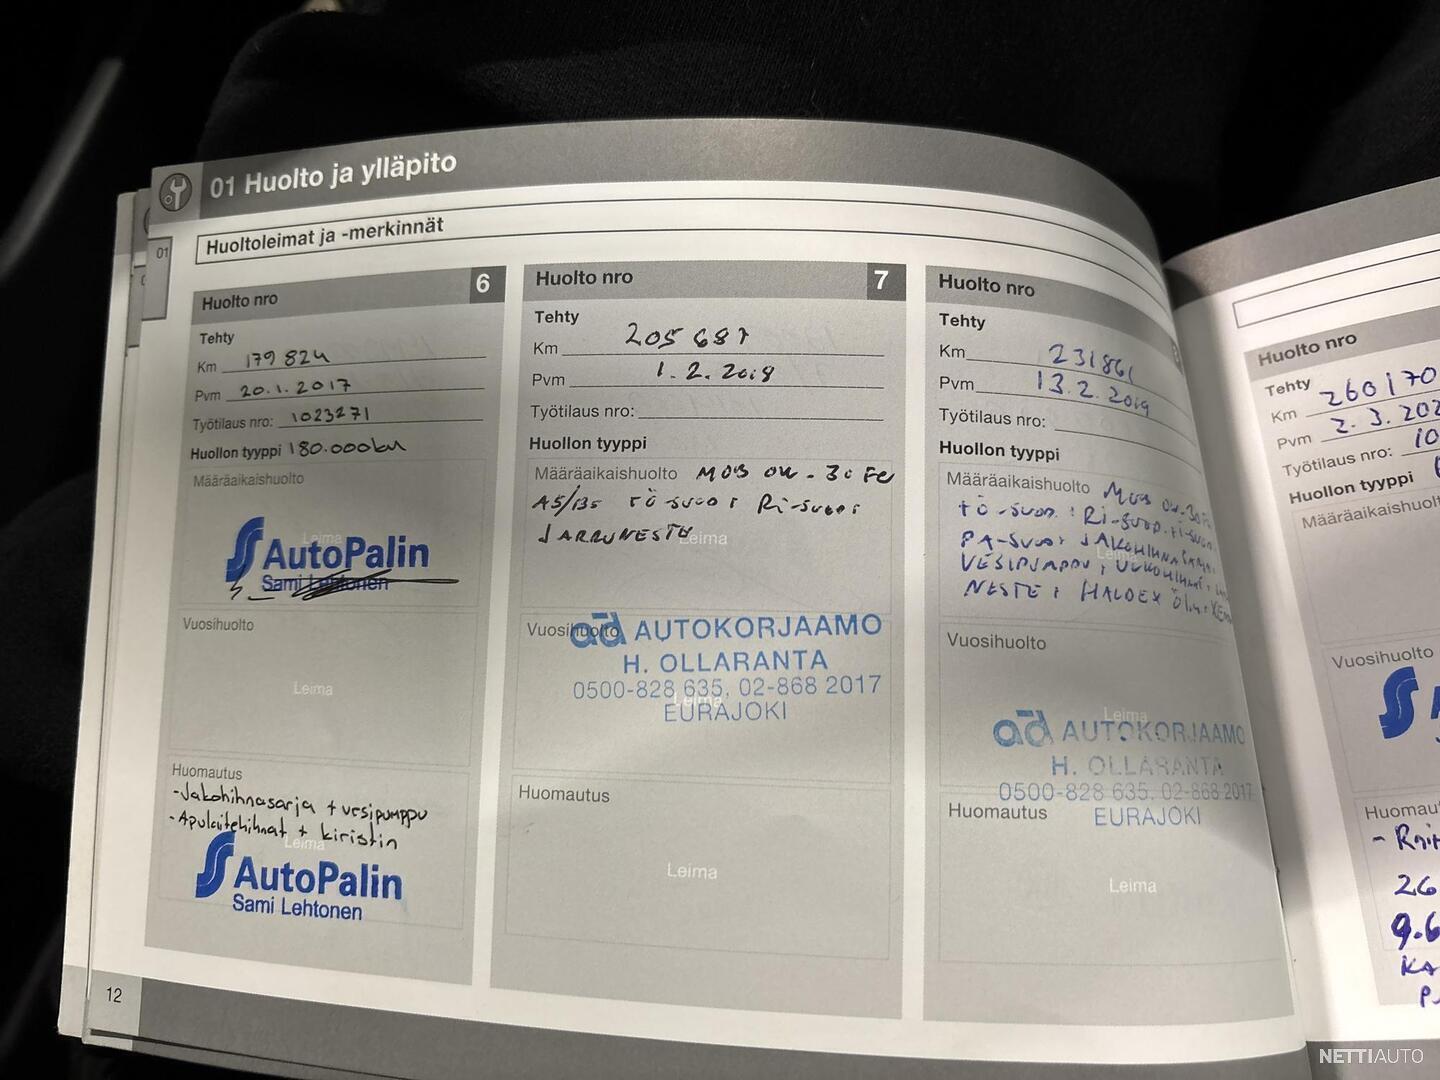 01 Huolto ja ylläpito
01
Huoltoleimat ja -merkinnät
Huolto nro 6
Tehty
Km 179 824
Pvm 20.1.2017
Työtilaus nro: 1023271
Huollon tyyppi 180.000km
Määräaikaishuolto
Leima
AutoPalin
Sami Lehtonen
Vuosihuolto
Leima
Huomautus
-Jakohihnasarja + vesipumppu
-Apulaitehihnat + kiristin
Leima
AutoPalin
Sami Lehtonen
12
Huolto nro 7
Tehty
Km 205 687
Pvm 1.2.2018
Työtilaus nro:
Huollon tyyppi
Määräaikaishuolto MOB 0W-30 FE
A5/B5 TÖ-SUOD: RI-SUOD:
JARRUNESTE
Leima
Vuosihuolto
ad AUTOKORJAAMO
H. OLLARANTA
0500-828 635, 02-868 2017
Leima
EURAJOKI
Huomautus
Leima
Huolto nro
Tehty
Km 231861
Pvm 13.2.2019
Työtilaus nro:
Huollon tyyppi
Määräaikaishuolto MOB 0W-30
TÖ-SUOD: RI-SUOD.
PA-SUOD:
Leima
VESIPUMPPU:
NESTE: HALDEX
Vuosihuolto
Leima
ad AUTOKORJAAMO
H. OLLARANTA
0500-828 635, 02-868 2017
Huomautus
EURAJOKI
Leima
Huolto nro
Tehty
Km 260170
Pvm 2.3.202
Työtilaus nro: 10
Huollon tyyppi
Määräaikaishuolt
Vuosihuolto
Huomaut
26
9.6
NETTIAUTO